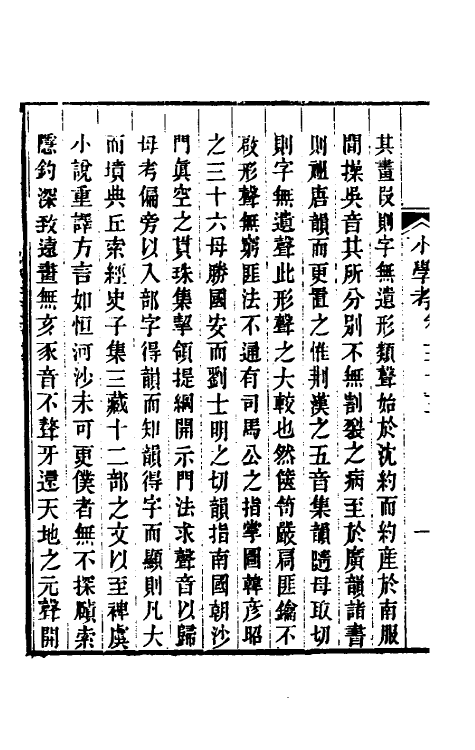 小學考
一
其畫叚則字無遺形類聲始於沈約而約産於南服
間操吳音其所分别不無割裂之病至於廣韻諸書
則祖唐韻而更置之惟荆漢之五音集韻隨母取切
則字無遺聲此形聲之大較也然篋笥嚴扃匪鑰不
啟形聲無窮匪法不通有司馬公之指掌圖韓彦昭
之三十六母勝國安而劉士明之切韻指南國朝沙
門眞空之貫珠集挈領提綱開示門法求聲音以歸
母考偏旁以入部字得韻而知韻得字而顯則凡大
而墳典丘索經史子集三藏十二部之文以至稗虞
小說重譯方言如恒河沙未可更僕者無不探賾索
隱鈎深致遠畫無亥豕音不聱牙還天地之元聲開